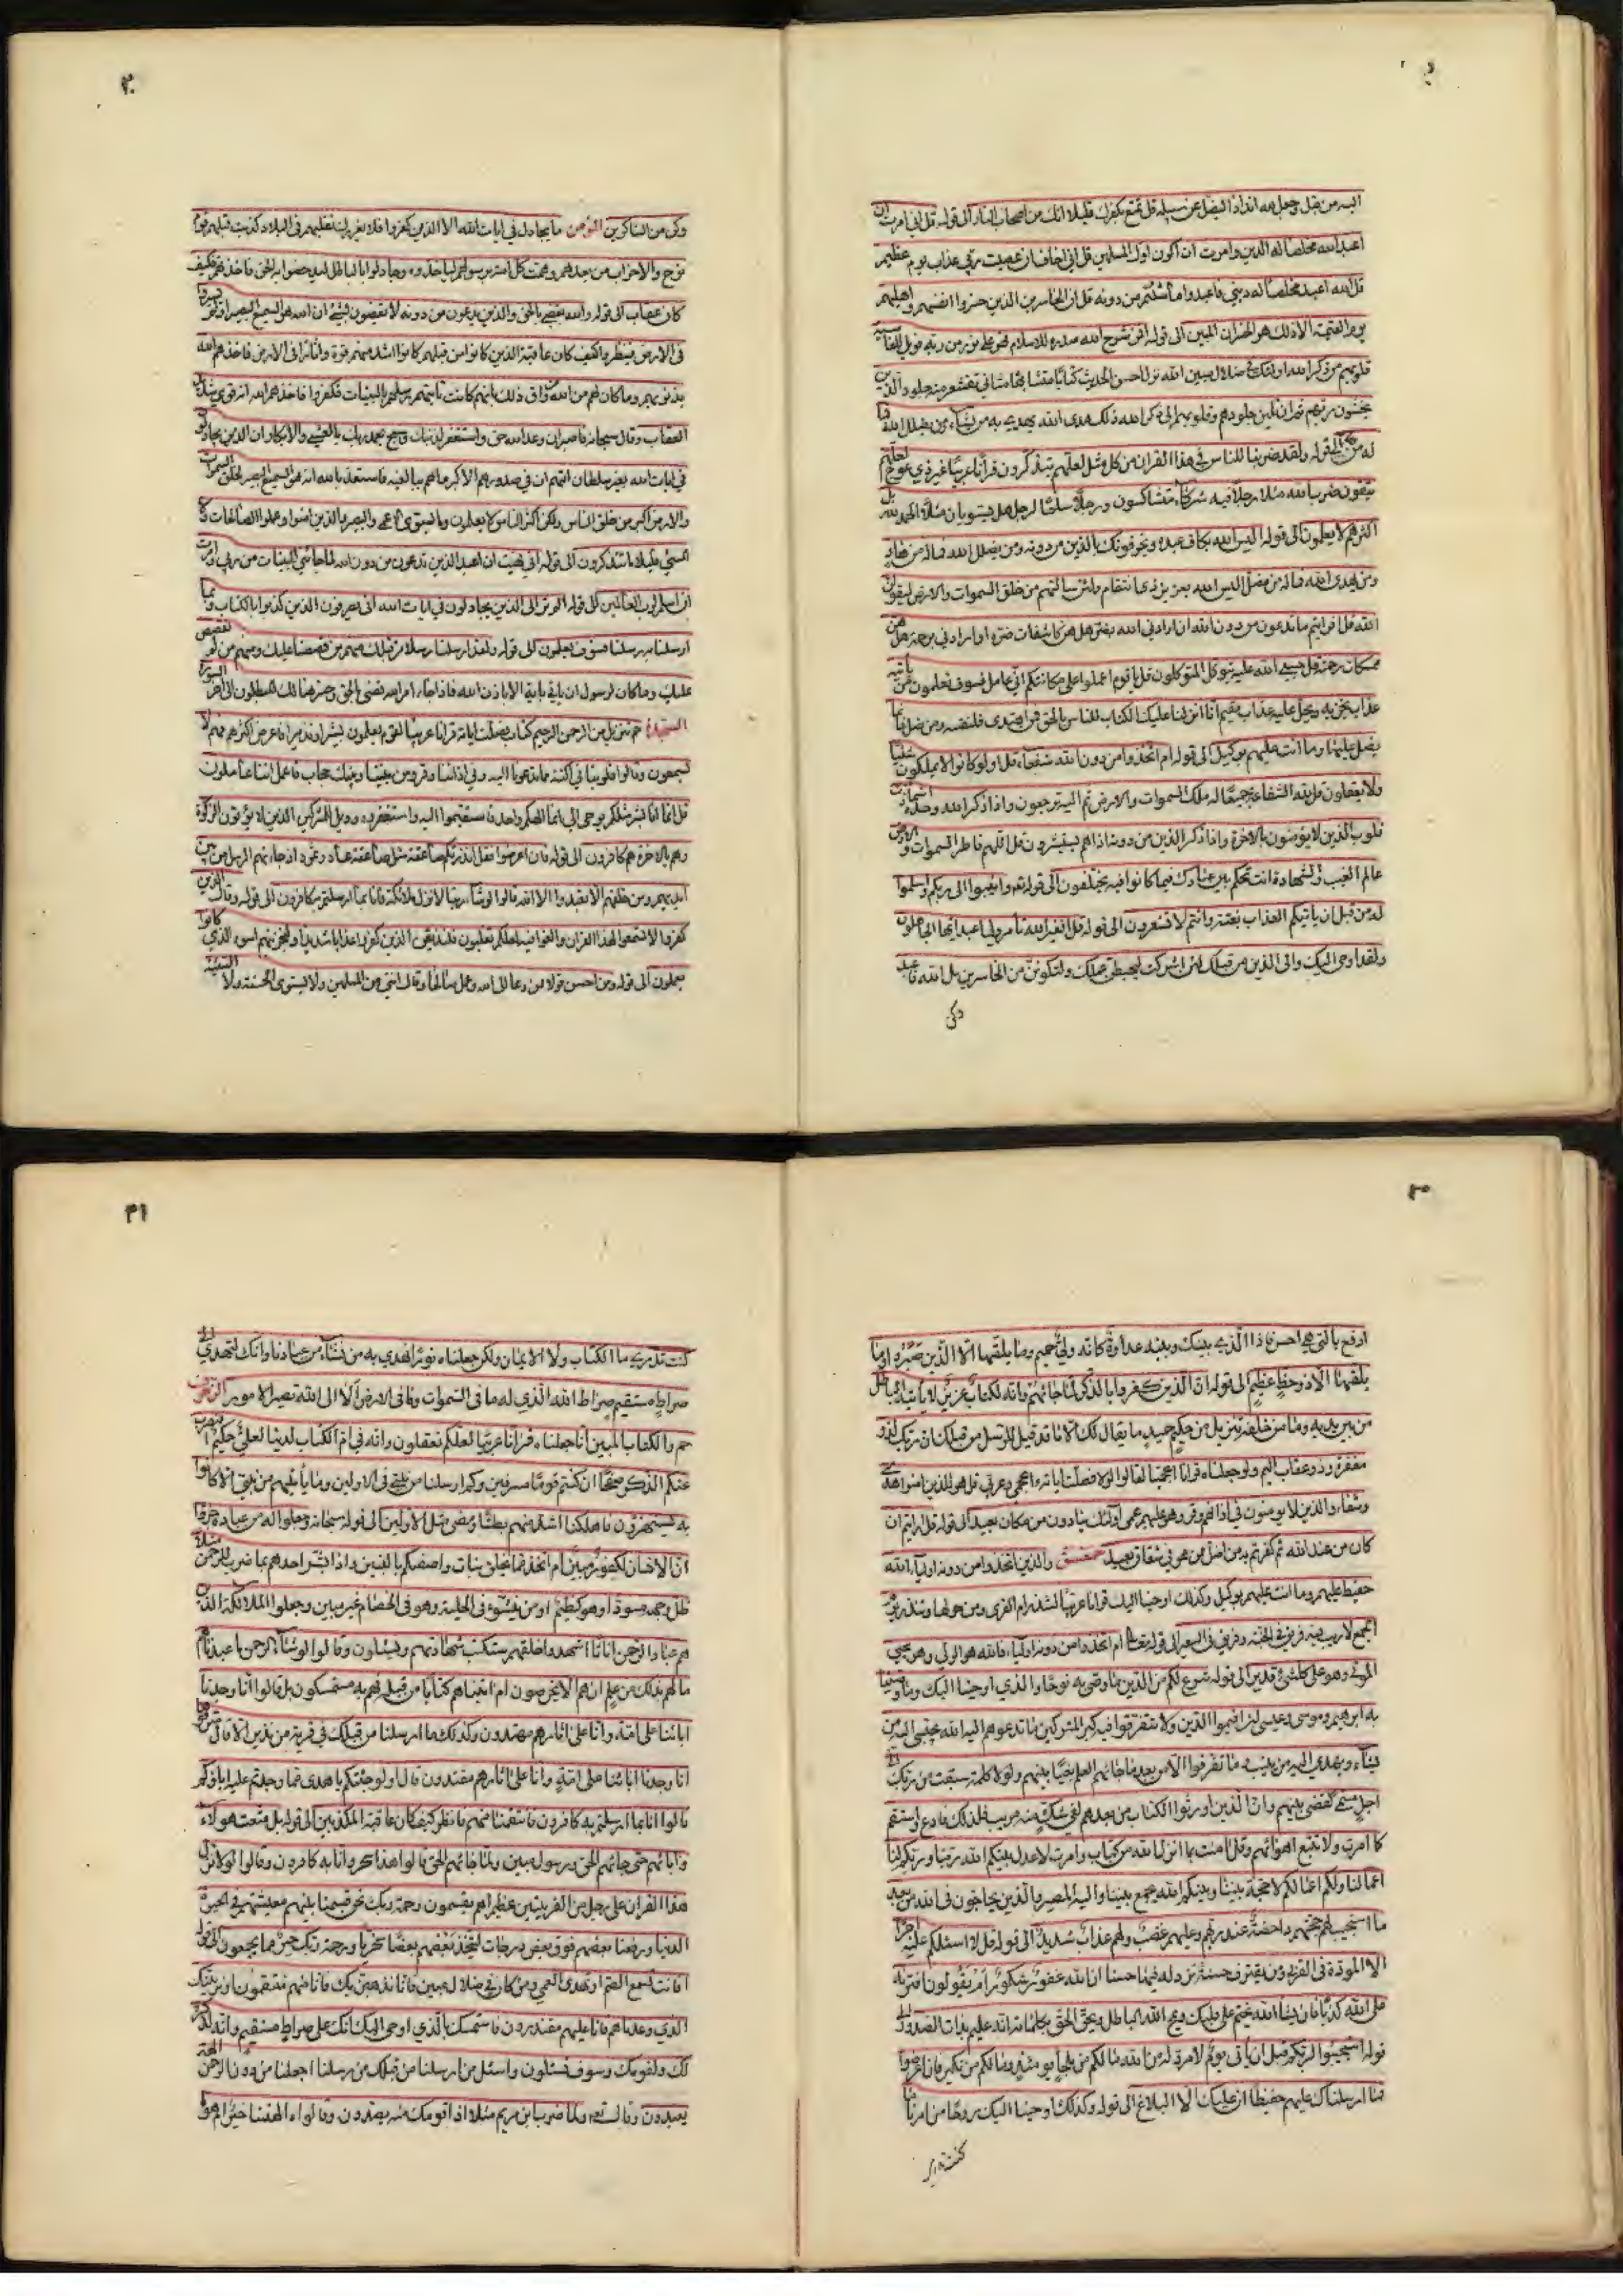 اليه من قبل وجعل لله اندادا ليضل عن سبيله قل تمتع بكفرك قليلا انك من اصحاب النار الى قوله قل اني امرت ان
اعبد الله مخلصا له الدين وامرت ان اكون اول المسلمين قل اني اخاف ان عصيت ربي عذاب يوم عظيم
قل الله اعبد مخلصا له ديني فاعبدوا ما شئتم من دونه قل ان الخاسرين الذين خسروا انفسهم واهليهم
يوم القيمة الا ذلك هو الخسران المبين الى قوله افمن شرح الله صدره للاسلام فهو على نور من ربه فويل للقاسية
قلوبهم من ذكر الله اولئك في ضلال مبين الله نزل احسن الحديث كتابا متشابها مثاني تقشعر منه جلود الذين
يخشون ربهم ثم ان تلين جلودهم وقلوبهم الى ذكر الله ذلك هدى الله يهدي به من يشاء ومن يضلل الله فما
له من هاد الى قوله ولقد ضربنا للناس في هذا القران من كل مثل لعلهم يتذكرون قرآنا عربيا غير ذي عوج لعلهم
يتقون ضرب الله مثلا رجلا فيه شركاء متشاكسون ورجلا سلما لرجل هل يستويان مثلا الحمد لله بل
اكثرهم لا يعلمون الى قوله اليس الله بكاف عبده ويخوفونك بالذين من دونه ومن يضلل الله فما له من هاد
ومن يهدى الله فما له من مضل اليس الله بعزيز ذي انتقام ولئن سالتهم من خلق السموات والارض ليقولن
الله قل افرايتم ما تدعون من دون الله ان ارادني الله بضر هل هن كاشفات ضره او ارادني برحمة هل هن
ممسكات رحمته قل حسبي الله عليه يتوكل المتوكلون قل يا قوم اعملوا على مكانتكم اني عامل فسوف تعلمون من يأتيه
عذاب يخزيه ويحل عليه عذاب مقيم انا انزلنا عليك الكتاب للناس بالحق فمن اهتدى فلنفسه ومن ضل فانما
يضل عليها وما انت عليهم بوكيل الى قوله ام اتخذوا من دون الله شفعاء قل اولو كانوا لا يملكون شيئا
ولا يعقلون قل لله الشفاعة جميعا له ملك السموات والارض ثم اليه ترجعون واذا ذكر الله وحده اشمازت
قلوب الذين لا يؤمنون بالاخرة واذا ذكر الذين من دونه اذا هم يستبشرون قل اللهم فاطر السموات والارض
عالم الغيب والشهادة انت تحكم بين عبادك فيما كانوا فيه يختلفون الى قوله تعالى وانيبوا الى ربكم واسلموا
له من قبل ان ياتيكم العذاب بغتة وانتم لا تشعرون الى قوله قل افغير الله تأمروني اعبد ايها الجاهلون
ولقد اوحى اليك والى الذين من قبلك لئن اشركت ليحبطن عملك ولتكونن من الخاسرين بل الله فاعبد
وكن
٣٠
وكن من الشاكرين المؤمن ما يجادل في ايات الله الا الذين كفروا فلا يغررك تقلبهم في البلاد كذبت قبلهم قوم
نوح والاحزاب من بعدهم وهمت كل امة برسولهم لياخذوه وجادلوا بالباطل ليدحضوا به الحق فاخذتهم فكيف
كان عقاب الى قوله والله يقضي بالحق والذين يدعون من دونه لا يقضون بشيء ان الله هو السميع البصير اولم يسيروا
في الارض فينظروا كيف كان عاقبة الذين كانوا من قبلهم كانوا اشد منهم قوة واثارا في الارض فاخذهم الله
بذنوبهم وما كان لهم من الله من واق ذلك بانهم كانت تاتيهم رسلهم بالبينات فكفروا فاخذهم الله انه قوي شديد
العقاب وقال سبحانه فاصبر ان وعد الله حق واستغفر لذنبك وسبح بحمد ربك بالعشي والابكار ان الذين يجادلون
في ايات الله بغير سلطان اتيهم ان في صدورهم الا كبر ما هم ببالغيه فاستعذ بالله انه هو السميع البصير لخلق السموات
والارض اكبر من خلق الناس ولكن اكثر الناس لا يعلمون وما يستوى الاعمى والبصير والذين امنوا وعملوا الصالحات ولا
المسيء قليلا ما تتذكرون الى قوله اني نهيت ان اعبد الذين تدعون من دون الله لما جاءني البينات من ربي وامرت
ان اسلم لرب العالمين الى قوله الم تر الى الذين يجادلون في ايات الله انى يصرفون الذين كذبوا بالكتاب وبما
ارسلنا به رسلنا فسوف يعلمون الى قوله ولقد ارسلنا رسلا من قبلك منهم من قصصنا عليك ومنهم من لم نقصص
عليك وما كان لرسول ان ياتي باية الا باذن الله فاذا جاء امر الله قضى بالحق وخسر هنالك المبطلون الى آخر السورة
السجدة حم تنزيل من الرحمن الرحيم كتاب فصلت اياته قرانا عربيا لقوم يعلمون بشيرا ونذيرا فاعرض اكثرهم فهم لا
يسمعون وقالوا قلوبنا في اكنة مما تدعونا اليه وفي اذاننا وقر ومن بيننا وبينك حجاب فاعمل اننا عاملون
قل انما انا بشر مثلكم يوحى الي انما الهكم اله واحد فاستقيموا اليه واستغفروه وويل للمشركين الذين لا يؤتون الزكوة
وهم بالاخرة هم كافرون الى قوله فان اعرضوا فقل انذرتكم صاعقة مثل صاعقة عاد وثمود اذ جاءتهم الرسل من بين
ايديهم ومن خلفهم الا تعبدوا الا الله قالوا لو شاء ربنا لانزل ملائكة فانا بما ارسلتم به كافرون الى قوله وقال الذين
كفروا لا تسمعوا لهذا القران والغوا فيه لعلكم تغلبون فلنذيقن الذين كفروا عذابا شديدا ولنجزينهم اسوء الذي كانوا
يعملون الى قوله ومن احسن قولا ممن دعا الى الله وعمل صالحا وقال انني من المسلمين ولا تستوى الحسنة ولا السيئة
ادفع بالتي هي احسن فاذا الذي بينك وبينه عداوة كانه ولي حميم وما يلقيها الا الذين صبروا وما
يلقيها الا ذو حظ عظيم الى قوله ان الذين كفروا بالذكر لما جائهم وانه لكتاب عزيز لا يأتيه الباطل
من بين يديه ولا من خلفه تنزيل من حكيم حميد ما يقال لك الا ما قد قيل للرسل من قبلك ان ربك لذو
مغفرة وذو عقاب اليم ولو جعلناه قرانا اعجميا لقالوا لولا فصلت اياته ءاعجمي وعربي قل هو للذين امنوا هدى
وشفاء والذين لا يؤمنون في اذانهم وقر وهو عليهم عمى اولئك ينادون من مكان بعيد الى قوله قل ارايتم ان
كان من عند الله ثم كفرتم به من اضل ممن هو في شقاق بعيد حمعسق والذين اتخذوا من دونه اولياء الله
حفيظ عليهم وما انت عليهم بوكيل وكذلك اوحينا اليك قرانا عربيا لتنذر ام القرى ومن حولها وتنذر يوم
الجمع لا ريب فيه فريق في الجنة وفريق في السعير الى قوله تعالى ام اتخذوا من دونه اولياء فالله هو الولي وهو يحيي
الموتى وهو على كل شيء قدير الى قوله شرع لكم من الدين ما وصى به نوحا والذي اوحينا اليك وما وصينا
به ابرهيم وموسى وعيسى ان اقيموا الدين ولا تتفرقوا فيه كبر على المشركين ما تدعوهم اليه الله يجتبي اليه من
يشاء ويهدي اليه من ينيب وما تفرقوا الا من بعد ما جائهم العلم بغيا بينهم ولولا كلمة سبقت من ربك الى
اجل مسمى لقضى بينهم وان الذين اورثوا الكتاب من بعدهم لفي شك منه مريب فلذلك فادع واستقم
كما امرت ولا تتبع اهوائهم وقل امنت بما انزل الله من كتاب وامرت لاعدل بينكم الله ربنا وربكم لنا
اعمالنا ولكم اعمالكم لا حجة بيننا وبينكم الله يجمع بيننا واليه المصير والذين يحاجون في الله من بعد
ما استجيب له حجتهم داحضة عند ربهم وعليهم غضب ولهم عذاب شديد الى قوله قل لا اسئلكم عليه اجرا
الا المودة في القربى ومن يقترف حسنة نزد له فيها حسنا ان الله غفور شكور ام يقولون افترى
على الله كذبا فان يشأ الله يختم على قلبك ويمح الله الباطل ويحق الحق بكلماته انه عليم بذات الصدور الى
قوله استجيبوا لربكم من قبل ان يأتي يوم لا مرد له من الله مالكم من ملجأ يومئذ ومالكم من نكير فان اعرضوا
فما ارسلناك عليهم حفيظا ان عليك الا البلاغ الى قوله وكذلك اوحينا اليك روحا من امرنا ما
كنت تدري
٣١
كنت تدري ما الكتاب ولا الايمان ولكن جعلناه نورا نهدي به من نشاء من عبادنا وانك لتهدي الى
صراط مستقيم صراط الله الذي له ما في السموات وما في الارض الا الى الله تصير الامور الزخرف
حم والكتاب المبين انا جعلناه قرانا عربيا لعلكم تعقلون وانه في ام الكتاب لدينا لعلي حكيم افنضرب
عنكم الذكر صفحا ان كنتم قوما مسرفين وكم ارسلنا من نبي في الاولين وما يأتيهم من نبي الا كانوا
به يستهزؤن فاهلكنا اشد منهم بطشا ومضى مثل الاولين الى قوله سبحانه وجعلوا له من عباده جزءا
ان الانسان لكفور مبين ام اتخذ مما يخلق بنات واصفيكم بالبنين واذا بشر احدهم بما ضرب للرحمن مثلا
ظل وجهه مسودا وهو كظيم او من ينشؤ في الحلية وهو في الخصام غير مبين وجعلوا الملائكة الذين
هم عباد الرحمن اناثا اشهدوا خلقهم ستكتب شهادتهم ويسئلون وقالوا لو شاء الرحمن ما عبدناهم
ما لهم بذلك من علم ان هم الا يخرصون ام اتيناهم كتابا من قبله فهم به مستمسكون بل قالوا انا وجدنا
ابائنا على امة وانا على اثارهم مهتدون وكذلك ما ارسلنا من قبلك في قرية من نذير الا قال مترفوها
انا وجدنا ابائنا على امة وانا على اثارهم مقتدون قال اولو جئتكم باهدى مما وجدتم عليه اباؤكم
قالوا انا بما ارسلتم به كافرون فانتقمنا منهم فانظر كيف كان عاقبة المكذبين الى قوله بل متعت هؤلاء
وابائهم حتى جائهم الحق ورسول مبين ولما جائهم الحق قالوا هذا سحر وانا به كافرون وقالوا لولا نزل
هذا القران على رجل من القريتين عظيم اهم يقسمون رحمة ربك نحن قسمنا بينهم معيشتهم في الحيوة
الدنيا ورفعنا بعضهم فوق بعض درجات ليتخذ بعضهم بعضا سخريا ورحمة ربك خير مما يجمعون الى قوله
افانت تسمع الصم او تهدى العمي ومن كان في ضلال مبين فاما نذهبن بك فانا منهم منتقمون او نرينك
الذي وعدناهم فانا عليهم مقتدرون فاستمسك بالذي اوحى اليك انك على صراط مستقيم وانه لذكر
لك ولقومك وسوف تسئلون واسئل من ارسلنا من قبلك من رسلنا اجعلنا من دون الرحمن الهة
يعبدون وقال تعالى ولما ضرب ابن مريم مثلا اذا قومك منه يصدون وقالوا ءالهتنا خير ام هو